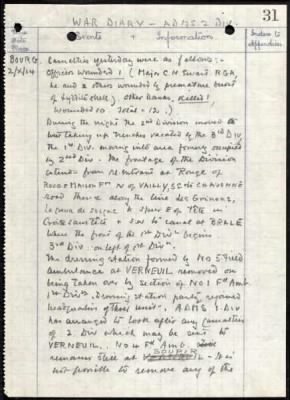 31
WAR DIARY - ADMS 2 DIV.
Date
Place
Events + Information
Index to
appendices
BOURG.
2/X/14
Casualties yesterday were as follows:-
Officers Wounded 1 (Major C.N. Ewart. R.G.A.
he and 2 others wounded by premature burst
of Lyddite shell). Other Ranks, Killed 1
Wounded 10. Total = 12.
During the night the 2nd Division moved
west taking up trenches vacated by the 3rd DIV
the 1st Div. moving into area formerly occupied
by 2nd Div - The frontage of the Division
extends from re entrant at Rouge of
Rouge Maison Fme N of VAILLY, SE to CHAVONNE
Road thence along the line les Grinons,
Spur E of Tête in
+ S to canal at BRAYE
where the front of the 1st Div begins
3rd Div. on left of 1st Div.
The dressing station formed by No 5 Field
Ambulance at VERNEUIL removed on
being taken over by section of No 1 Fd Amb
1st Div. Dressing station party rejoined
headquarters of these units. ADMS 1 Div
has arranged to look after any casualties
of 2 Div which may be sent to
VERNEUIL. No 4 Fd Amb.
remains still at SOUPIR - It is
not possible to remove any of the